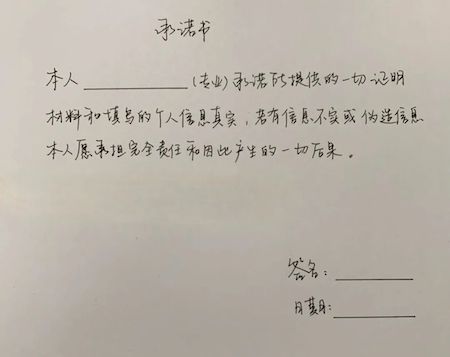 承诺书
本人____________(专业)承诺所提供的一切证明
材料和填写的个人信息真实,若有信息不实或伪造信息
本人愿承担完全责任和因此产生的一切后果。
签名:________
日期:________